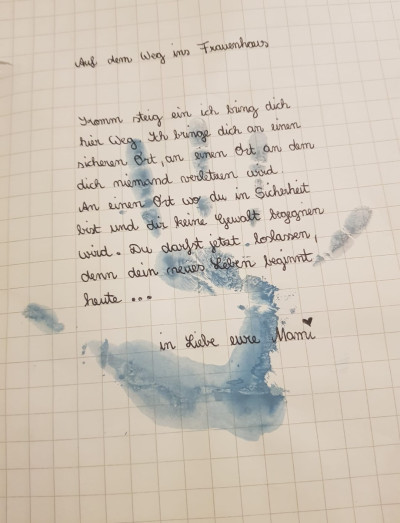 Auf dem Weg ins Frauenhaus
Komm steig ein ich bring dich
hier Weg. Ich bringe dich an einen
sicheren Ort, an einen Ort an dem
dich niemand verletzen wird.
An einen Ort wo du in Sicherheit
bist und dir keine Gewalt begegnen
wird. Du darfst jetzt loslassen,
denn dein neues Leben beginnt
heute ...
in Liebe eure Mami